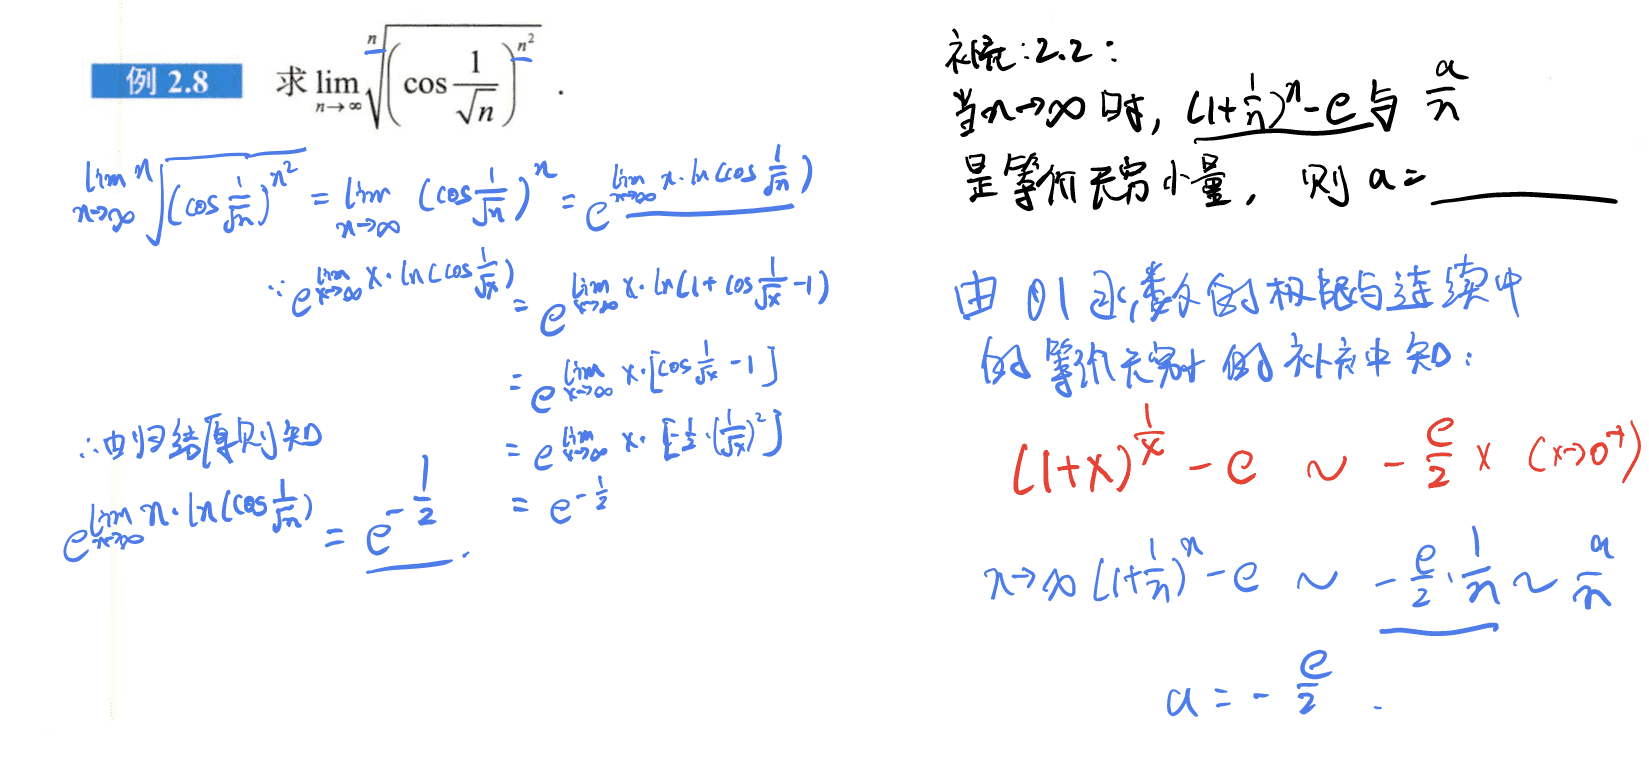 例 2.8 求 lim_{n→∞} \sqrt[n]{(cos 1/√n)^{n²}} .
lim_{n→∞} \sqrt[n]{(cos 1/√n)^{n²}} = lim_{n→∞} (cos 1/√n)^n = e^{lim_{n→∞} n·ln(cos 1/√n)}
∵ e^{lim_{x→∞} x·ln(cos 1/√x)} = e^{lim_{x→∞} x·ln(1+cos 1/√x −1)}
= e^{lim_{x→∞} x·[cos 1/√x −1]}
= e^{lim_{x→∞} x·[−1/2·(1/√x)²]}
= e^{−1/2}
∴由归结原则知
e^{lim_{n→∞} n·ln(cos 1/√n)} = e^{−1/2} .
补充:2.2:
当n→∞时, (1+1/n)^n −e与 a/n
是等价无穷小量, 则 a=
由 01 函数的极限与连续中
的等价无穷小的补充中知:
(1+x)^{1/x} − e ~ −e/2 x (x→0⁺)
n→∞ (1+1/n)^n −e ~ −e/2·1/n ~ a/n
a = −e/2 .